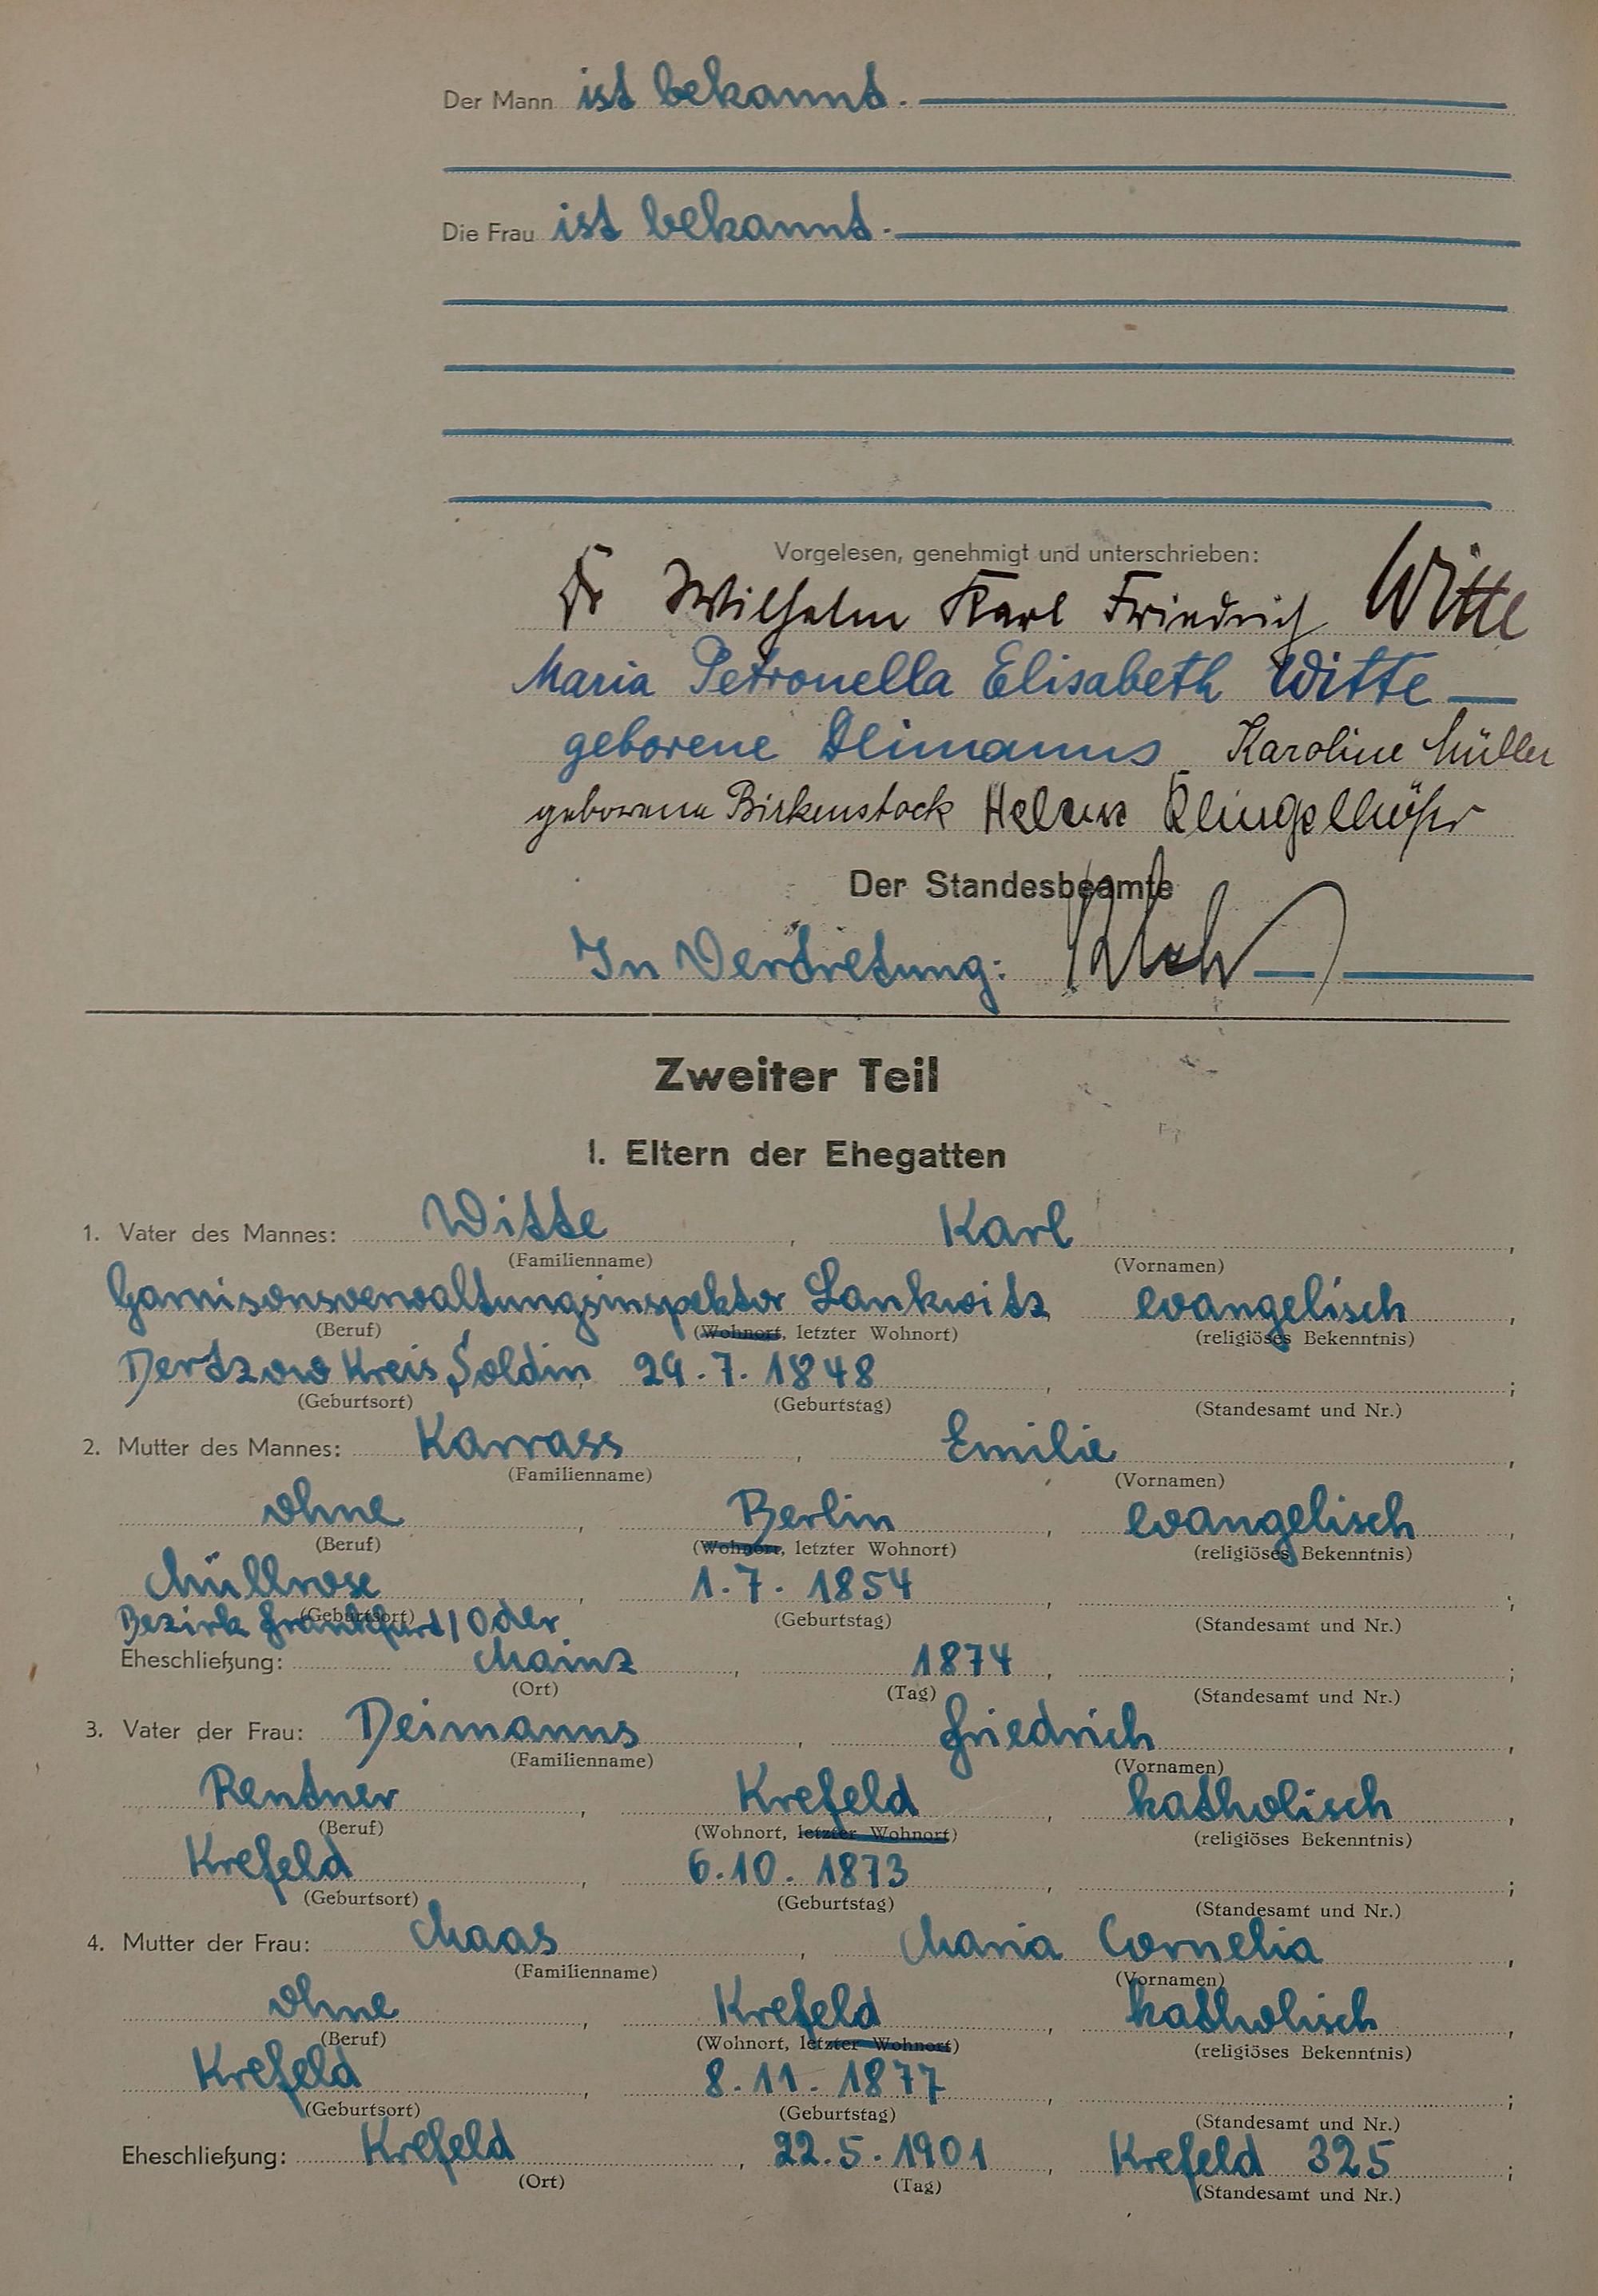 Der Mann ist bekannt.
Die Frau ist bekannt.
Vorgelesen, genehmigt und unterschrieben:
Dr Wilhelm Karl Friedrich Witte
Maria Petronella Elisabeth Witte
geborene Deimanns Karoline Müller
geborene Birkenstock Helene Klingelhöfer
Der Standesbeamte
In Vertretung:
Zweiter Teil
I. Eltern der Ehegatten
1. Vater des Mannes: Witte, Karl,
(Familienname) (Vornamen)
Garnisonsverwaltungsinspektor Lankwitz, evangelisch,
(Beruf) (Wohnort, letzter Wohnort) (religiöses Bekenntnis)
Dertzow Kreis Soldin, 29.7.1848, ;
(Geburtsort) (Geburtstag) (Standesamt und Nr.)
2. Mutter des Mannes: Karrass, Emilie,
(Familienname) (Vornamen)
ohne, Berlin, evangelisch,
(Beruf) (Wohnort, letzter Wohnort) (religiöses Bekenntnis)
Müllrose, 1.7.1854, ;
Bezirk Frankfurt/Oder (Geburtsort) (Geburtstag) (Standesamt und Nr.)
Eheschließung: Mainz, 1874, ;
(Ort) (Tag) (Standesamt und Nr.)
3. Vater der Frau: Deimanns, Friedrich,
(Familienname) (Vornamen)
Rentner, Krefeld, katholisch,
(Beruf) (Wohnort, letzter Wohnort) (religiöses Bekenntnis)
Krefeld, 6.10.1873, ;
(Geburtsort) (Geburtstag) (Standesamt und Nr.)
4. Mutter der Frau: Maas, Maria Cornelia,
(Familienname) (Vornamen)
ohne, Krefeld, katholisch,
(Beruf) (Wohnort, letzter Wohnort) (religiöses Bekenntnis)
Krefeld, 8.11.1877, ;
(Geburtsort) (Geburtstag) (Standesamt und Nr.)
Eheschließung: Krefeld, 22.5.1901, Krefeld 325;
(Ort) (Tag) (Standesamt und Nr.)